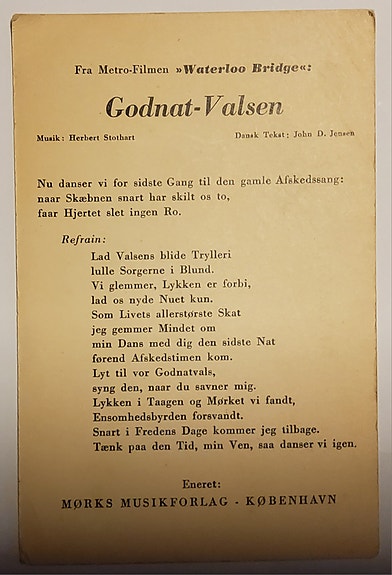 Fra Metro-Filmen »Waterloo Bridge«:
Godnat-Valsen
Musik: Herbert Stothart Dansk Tekst: John D. Jensen
Nu danser vi for sidste Gang til den gamle Afskedssang:
naar Skæbnen snart har skilt os to,
faar Hjertet slet ingen Ro.
Refrain:
Lad Valsens blide Trylleri
lulle Sorgerne i Blund.
Vi glemmer, Lykken er forbi,
lad os nyde Nuet kun.
Som Livets allerstørste Skat
jeg gemmer Mindet om
min Dans med dig den sidste Nat
førend Afskedstimen kom.
Lyt til vor Godnatvals,
syng den, naar du savner mig.
Lykken i Taagen og Mørket vi fandt,
Ensomhedsbyrden forsvandt.
Snart i Fredens Dage kommer jeg tilbage.
Tænk paa den Tid, min Ven, saa danser vi igen.
Eneret:
MØRKS MUSIKFORLAG - KØBENHAVN